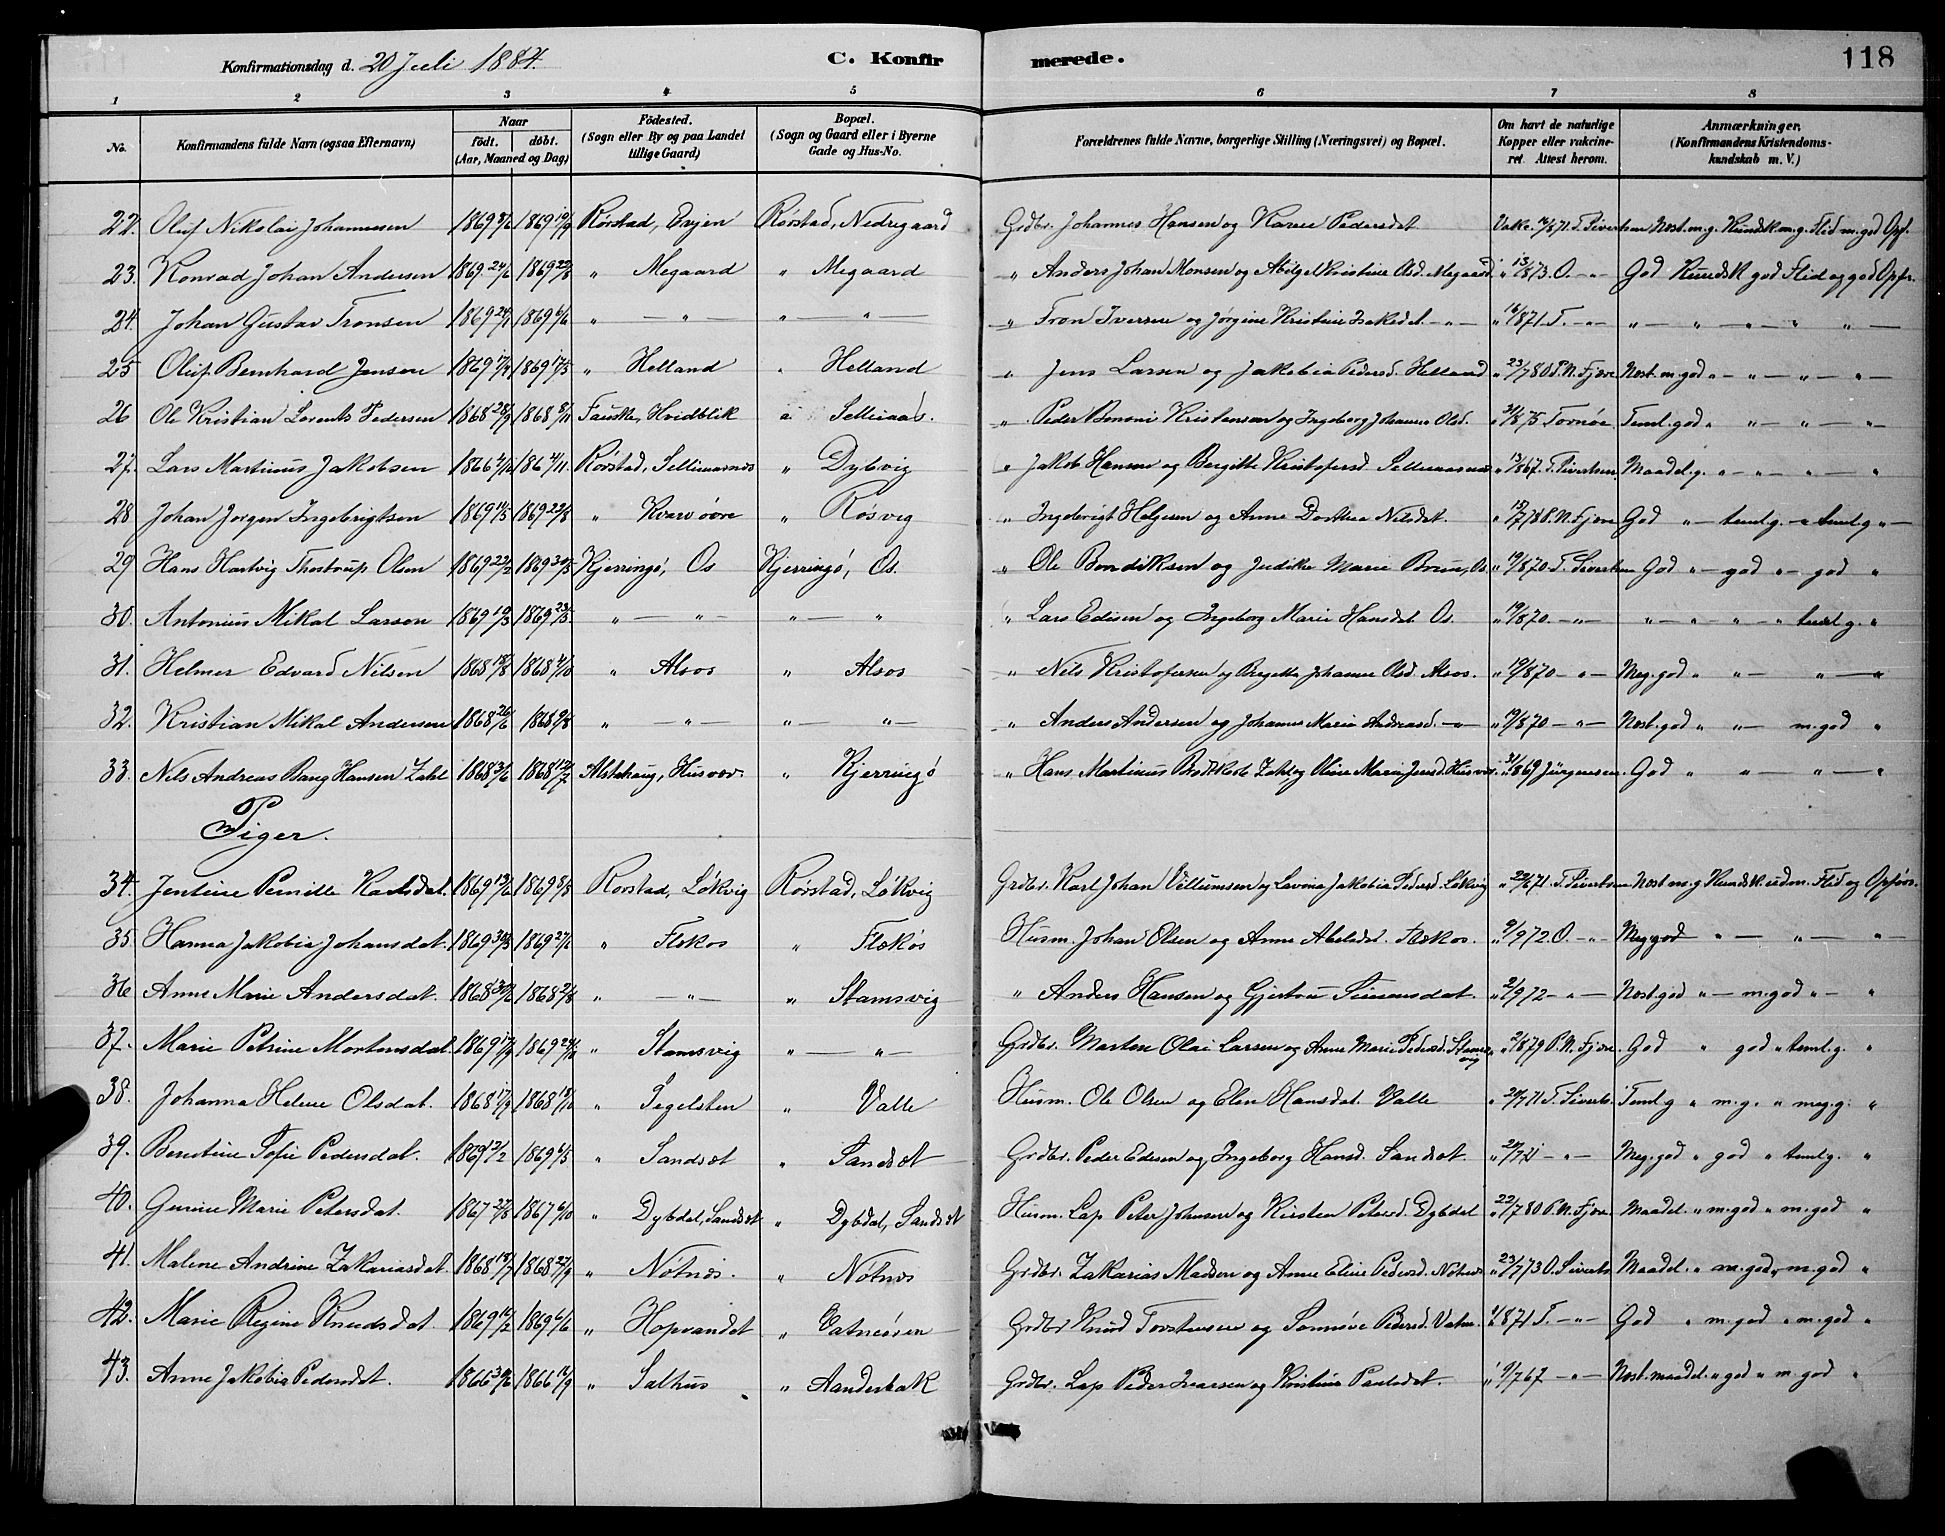 Konfirmationsdag d. 20 Juli 1884. C. Konfirmerede. 118
1 2 3 4 5 6 7 8
No. Konfirmandens fulde Navn (ogsaa Efternavn) Naar født. døbt. (Aar, Maaned og Dag) Fødested. (Sogn eller By og paa Landet tillige Gaard) Bopæl. (Sogn og Gaard eller i Byerne Gade og Hus-No. Forældrenes fulde Navne, borgerlige Stilling (Næringsvei) og Bopæl. Om havt de naturlige Kopper eller vakcineret. Attest herom. Anmærkninger. (Konfirmandens Kristendomskundskab m. V.)
22. Oluf Nikolai Johannesen 1869 1869 19/9 Rørstad, Evjen Rørstad, Nedregaard Grdbr. Johannes Hansen og Karen Pedersdat Vakc. T. Sivertsen Nost. m. g. Kundsk. m. g. Flid m. god Opf.
23. Konrad Johan Andersen 1869 24/6 1869 22/8 " Megaard " Megaard " Anders Johan Monsen og Abigel Kristine Olsd. Megaard " 13/8 73. O. -"- God Kundsk god Flid og god Opfr.
24. Johan Gustav Tronsen 1869 1869 6/6 " — " — " — " — " Tron Iversen og Jørgine Kristine Isakdt. -"- " 16/8 71 T. -"- " — " — " — " — " —
25 Oluf Bernhard Jensen 1869 17/4 1869 17/5 " Helland " Helland " Jens Larsen og Jakobia Pedersd. Helland " 23/7 80 P. N. Fjære Nost. m. god " — " — " — " —
26 Ole Kristian Lorents Pedersen 1868 28/9 1868 8/11 Fauske, Hvidblik " Selliaas. " Peder Benoni Kristensen og Ingeborg Johanna Olsd. " 31/8 75 Tornøe Teml. god " " — " — " —
27. Lars Martinus Jakobsen 1866 186 4/11. Rørstad, Selliaasnes " Dybvig " Jakob Hansen og Bergitte Kristofersd. Selliaasnes " 13/8 67. T. Sivertsen Maadel. g. " — " — " "
28 Johan Jørgen Ingebrigtsen 1869 14/5 1869 22/8 " Kvarvøvre " Røsvig " Ingebrigt Helgesen og Anne Dorthea Nilsdat. " 15/7 78 P. N. Fjære God " — teml. g. — " teml. g " —
29 Hans Hartvig Thostrup Olsen 1869 22/2 1869 30/5 Kjerringø, Os Kjerringø, Os. " Ole Bendiksen og Judike Marie Brun, Os " 19/8 70. T. Sivertsen God " — god " — god "
30. Antonius Nikal Larsen 1869 19/3 1869 23/5. " — " — " — " " Lars Edisen og Ingeborg Marie Hansdat Os. " 19/8 70 — " — " — " " " teml. g. "
31. Helmer Edvard Nilsen 1868 18/8 1868 4/10 " Alsos " Alsos " Nils Kristofersen og Bergitta Johanna Olsd. Alsos. " 19/8 70 — " — Meg. god " " — " — "
32. Kristian Nikal Andersen 1868 26/6 1868 9/8 " — " — " — " — " Anders Andersen og Johanna Maria Andreasd. — " — " 19/8 70 — " — Nost. god " " — m. god "
33. Nils Andreas Bang Hansen Zahl 1868 3/6 1868 12/7 Alstahaug, Husvær " Kjerringø " Hans Martinus Brodtkorb Zahl og Oline Maria Jensd. Husvær. " 31/8 69 Jürgensen. God " " — " — "
Piger.
34. Jentine Pernille Karlsdat. 1869 13/6 1869 8/8 Rørstad, Løkvig Rørstad, Løkvig Grdbr. Karl Johan Villumsen og Lavina Jakobia Pedersd. Løkvig " 22/6 71. T. Sivertsen Nost. m. g. Kundsk. udm. Flid og Opførs.
35. Hanna Jakobia Johansdat. 1869 30/3 1869 27/6 " Flekos " Flekøs Husm. Johan Olsen og Anne Abelsdat. Flekos. " 9/9 72 O. -"- Meg. god " — " — "
36 Anne Marie Andersdat. 1868 1868 2/8 " — " — " Stamsvig " Anders Hansen og Gjertru Simonsdat. " 2/9 72 — " — Nost. god " — m. god " — "
37. Marie Petrine Mortensdat. 1869 17/9 1869 24/10 " Stamsvig " — " — Grdbr. Morten Olai Larsen og Anne Marie Pedersd. Stamsvig " 2/8 79 P. N. Fjære. God " god " teml. g. "
38. Johanna Helene Olsdat. 1868 17/9 1868 18/10 " Segelsten " Valle Husm. Ole Olsen og Elen Hansdat. Valle " 20/7 71 T. Sivertsn. Teml. g " m. g. " meg. g. "
39. Berntine Sofie Pedersdat. 1869 21/2 1869 6/5 " Sandset " Sandset Grdbr. Peder Edisen og Ingeborg Hansd. Sandset. " 20/7 71 — " — Meg. god " god " teml. g. "
40. Gunine Marie Petersdat. 1867 27/8 1867 6/10 " Dybdal, Sandset " Dybdal, Sandset Husm. Lap Peter Johnsen og Kirsten Petersd. Dybdal " 22/7 80 P. N. Fjære Maadel. " m. god " m. god "
41. Malene Andrine Zakariasdat. 1868 18/7 1868 27/9 " Nøtnes. " Nøtnes Grdbr. Zakarias Madsen og Anne Eline Pedersd. Nøtnes " 23/7 73 O. Sivertsn Maadel. " m. god " m. god "
42. Marie Regine Knudsdat. 1869 12/2 1869 6/6 " Hopvandet " Vatneøren Grdbr. Knud Torstensen og Synnøve Pedersd. Vatn. " 871 T. -"- God " m. god " m. god "
43. Anne Jakobia Pedersdat. 1866 30/6 1866 16/9 " Salhus " Aanderbak Grdbr. Lap Peder Ivarsen og Kristine Paulsdat. " 9/7 67 — " — Nost. maadel. " god " m. god "